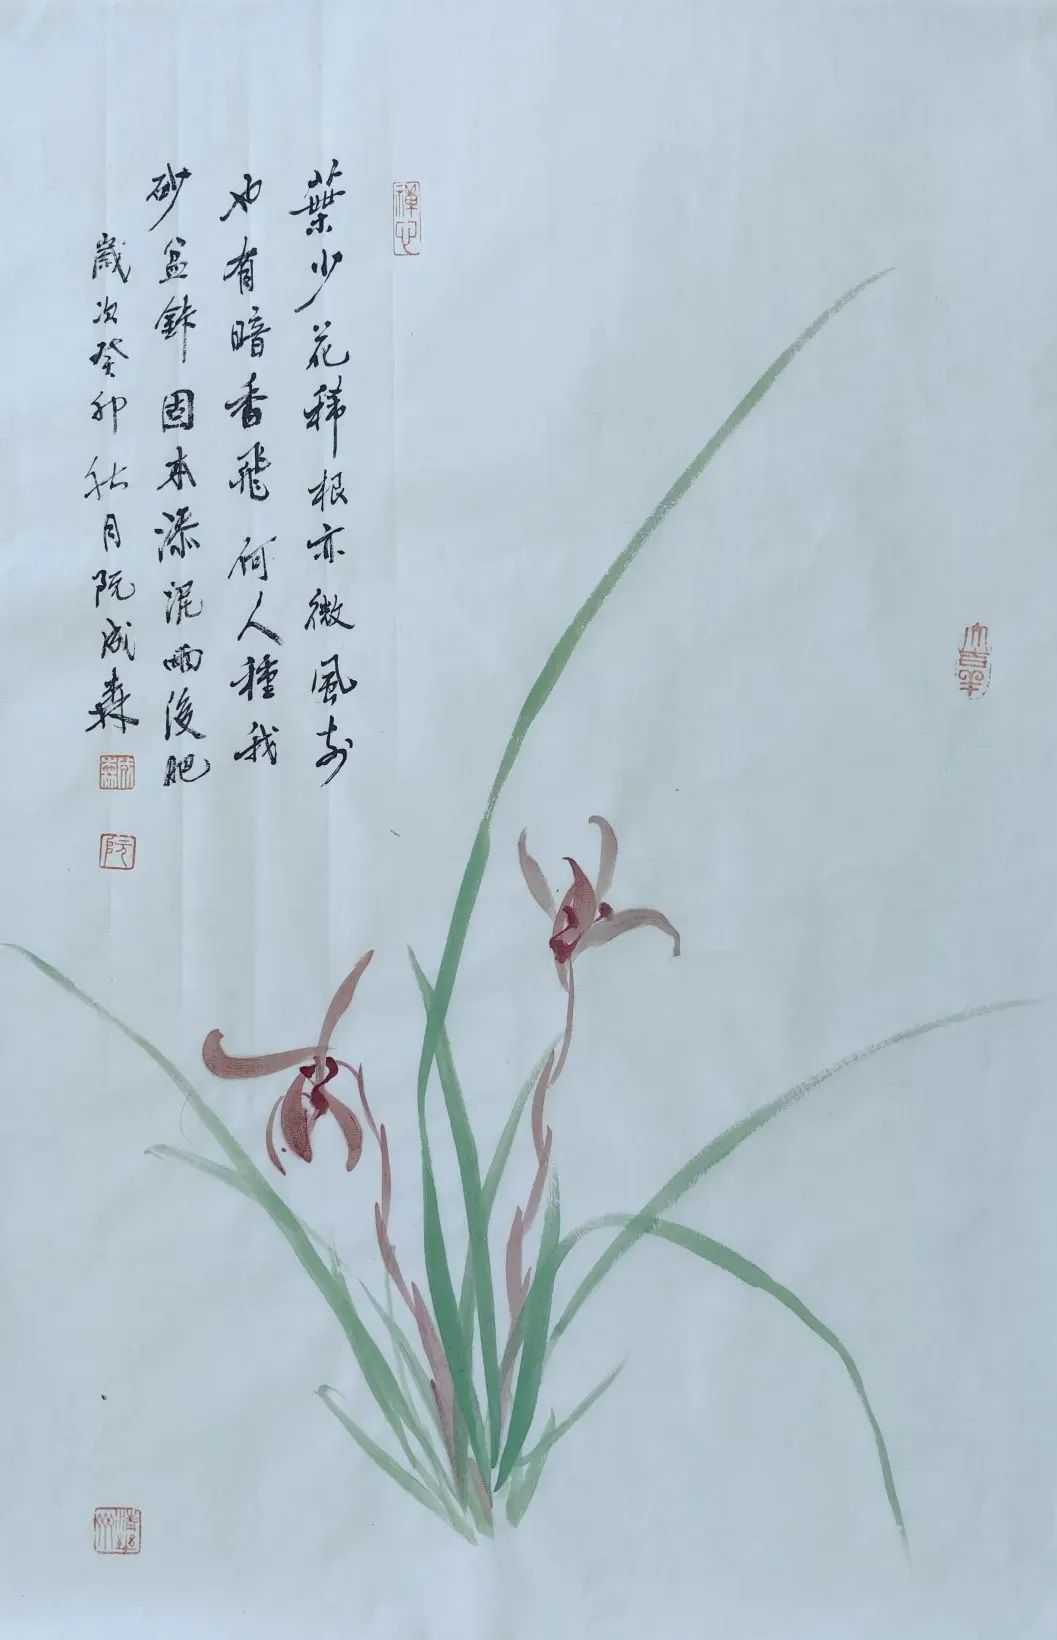 大吉羊
禪心
葉少花稀根亦微風前
也有暗香飛何人種我
砂盆鉢固本添泥雨後肥
歲次癸卯秋月阮成森
阮